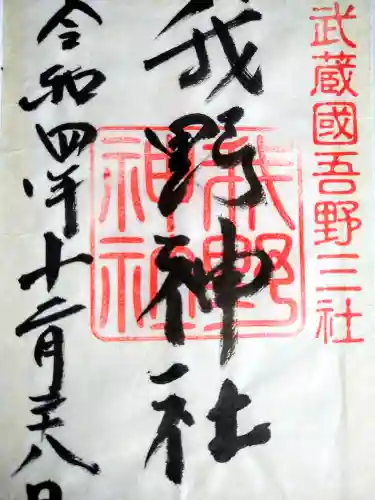 武蔵國吾野三社
我野神社
我野神社
令和四年十二月二十八日